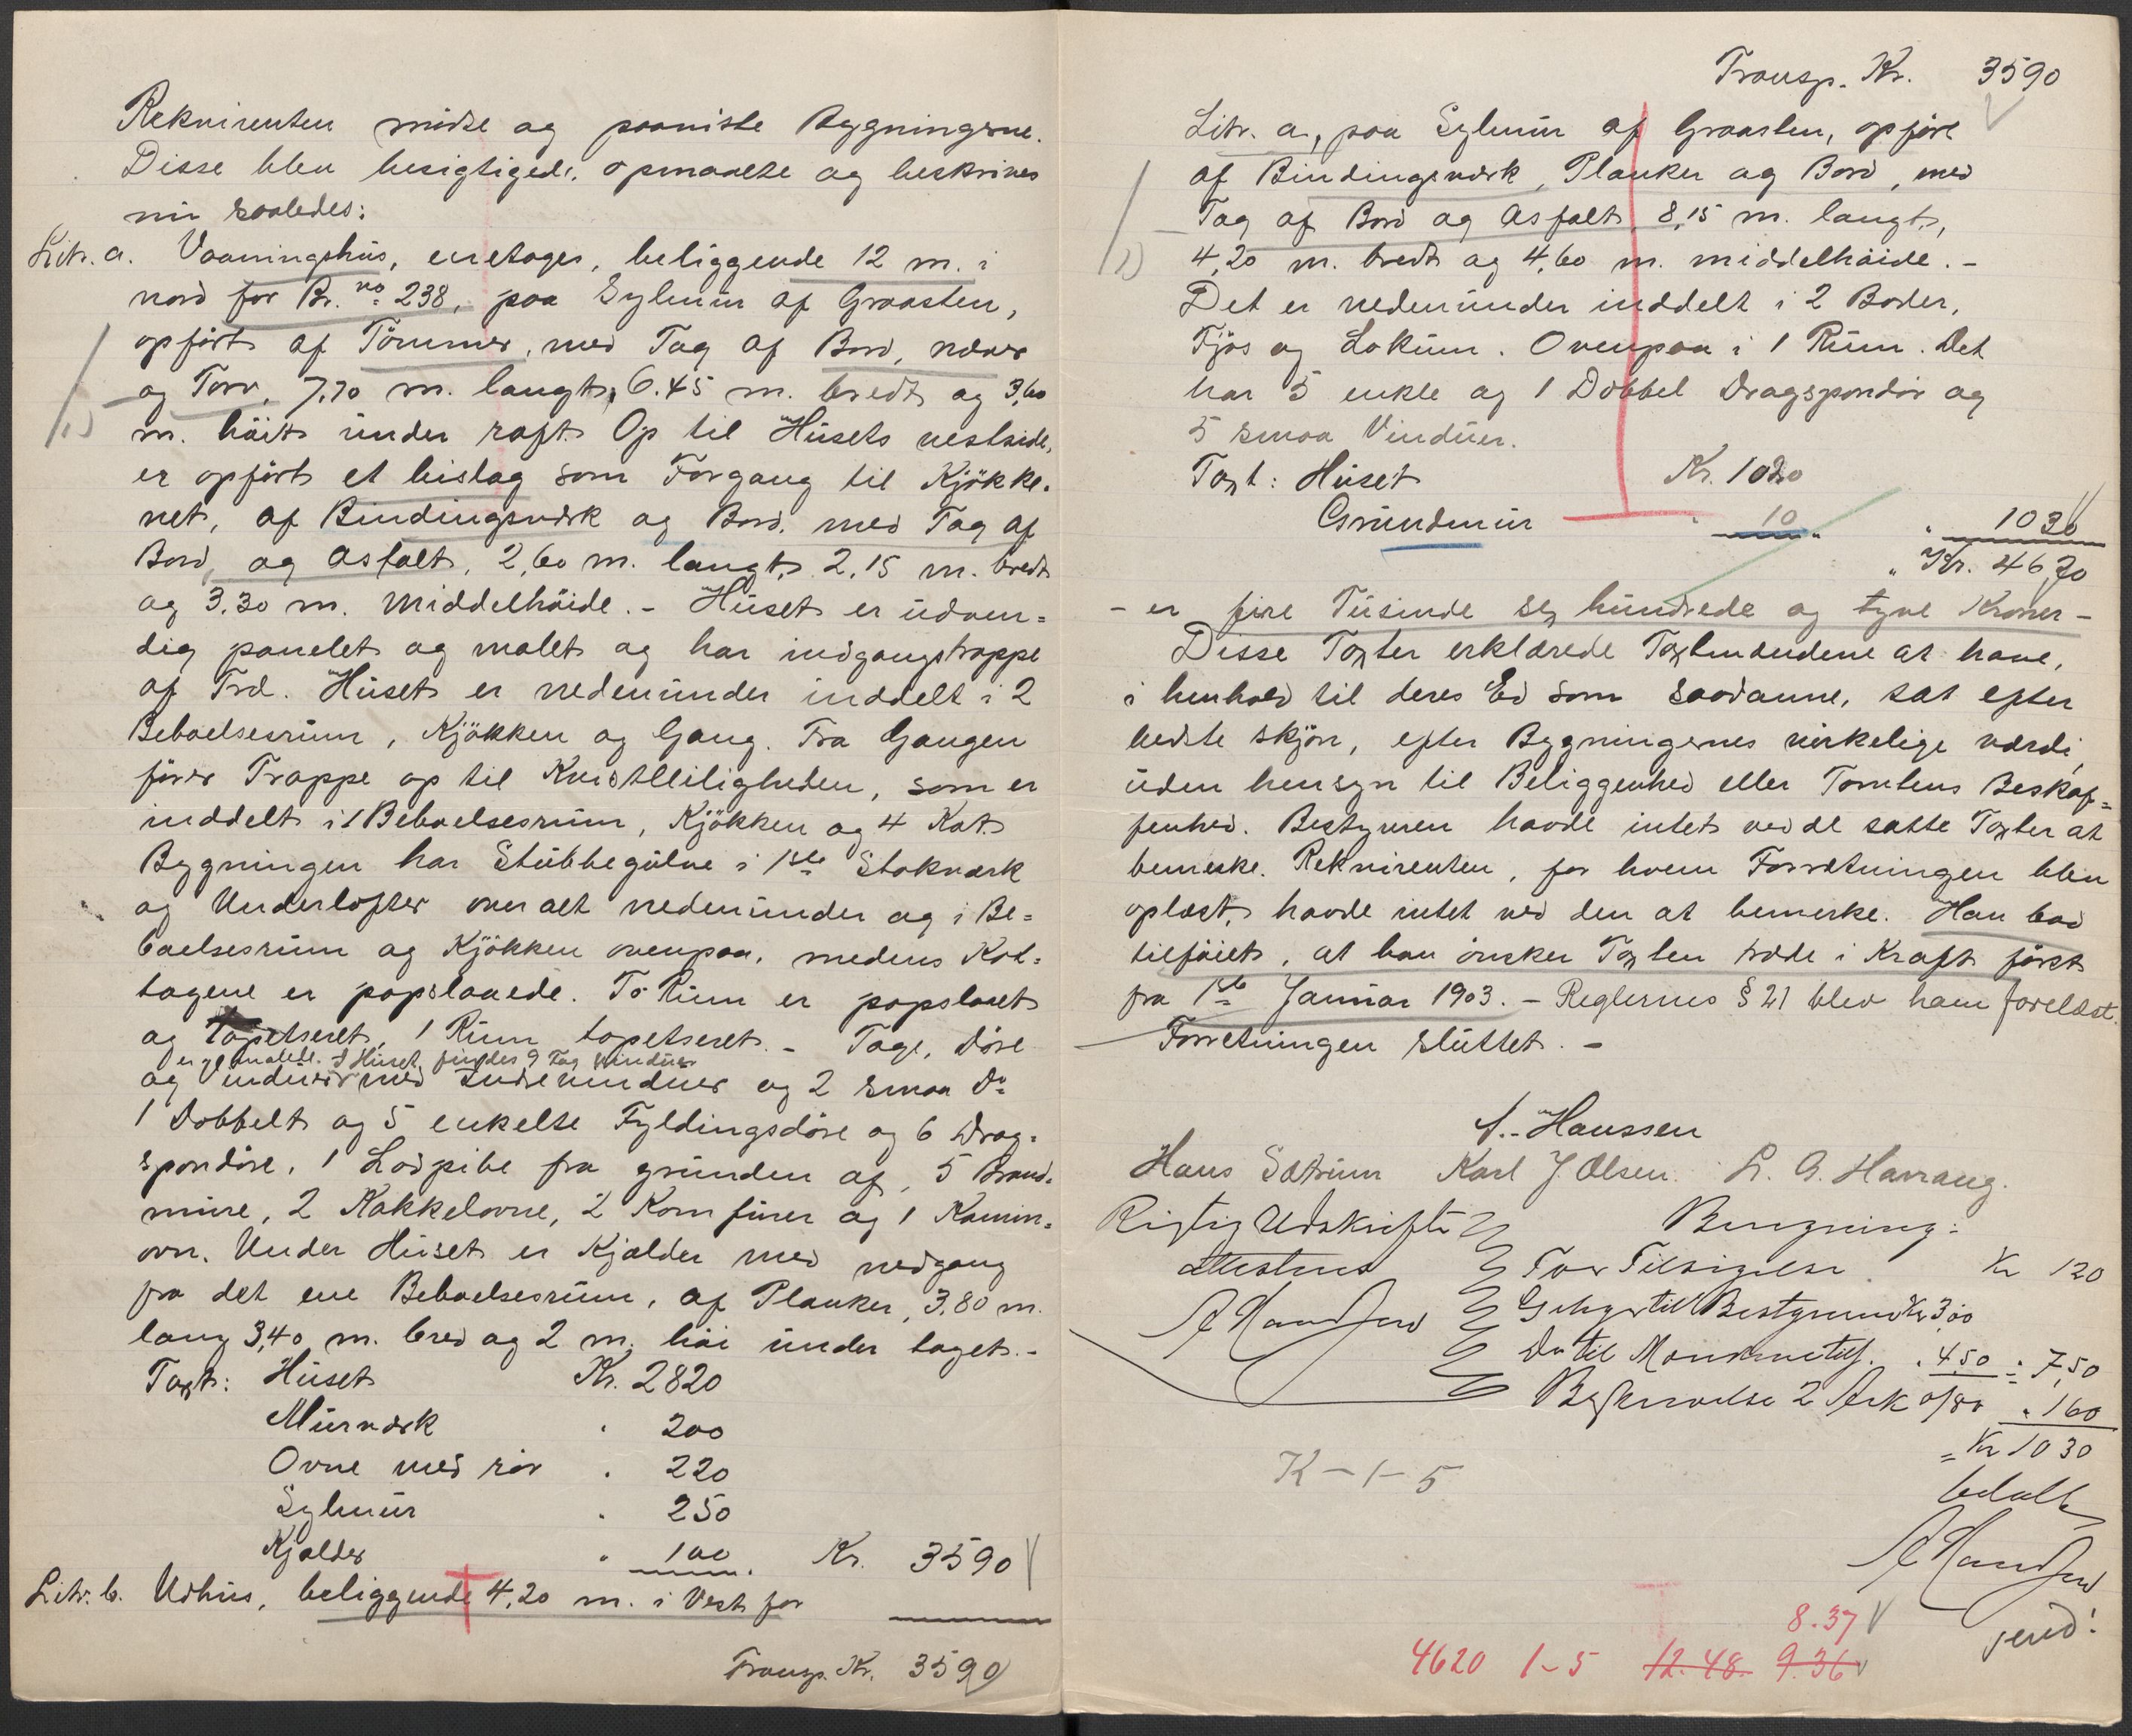 Rekvirenten mødte og paaviste Bygningerne.
Disse blev besigtigede, opmaalte og beskrives
nu saaledes:
Litr. a. Vaaningshus, enetages, beliggende 12 m. i
nord for Br. no 238, paa Sylmur af Graasten,
opført af Tömmer, med Tag af Bord, næver
og Torv, 7,70 m. langt, 6.45 m. bredt og 3,60
1)
m. höit under raft. Op til Husets vestside,
er opført et bislag som Forgang til Kjökke-
net, af Bindingsværk og Bord, med Tag af
Bord, og Asfalt, 2,60 m. langt, 2,15 m. bredt
og 3,30 m. Middelhöide. - Huset er udven=
dig panelet og malet og har indgangstrappe
af Træ. Huset er nedenunder inddelt i 2
Beboelsesrum, Kjökken og Gang. Fra Gangen
fører Trappe op til Kvistleiligheden, som er
inddelt i 1 Beboelsesrum, Kjökken og 4 Kot.
Bygningen har Stubbegulve i 1ste Stokværk
og Underlofter overalt nedenunder og i Be=
boelsesrum og Kjökken ovenpaa, medens Kot=
tagene er papslaaede. To Rum er papslaaet
og tapetseret, 1 Rum tapetseret. - Tage, döre
er gemalede. I Huset findes 9 Fag Vinduer
og Vinduer med Indrevinduer og 2 smaa Do
1 Dobbelt og 5 enkelte Fyldingsdöre og 6 Drag=
spondöre, 1 Lodpibe fra grunden af, 5 Brand-
mure, 2 Kakkelovne, 2 Komfurer og 1 Kamin=
ovn. Under Huset er Kjælder med nedgang
fra det ene Beboelsesrum, af Planker, 3,80 m.
lang 3,40 m. bred og 2 m. höi under taget. -
Taxt: Huset Kr. 2820
Murværk " 200
Ovne med rör " 220
Sylmur " 250
Kjælder " 100 Kr. 3590
Litr. b. Udhus, beliggende 4,20 m. i Vest for
Transp. Kr. 3590
Transp. Kr. 3590
Litr. a, paa Sylmur af Graasten, opført
af Bindingsværk, Planker og Bord, med
Tag af Bord og Asfalt, 8,15 m. langt,
2)
4,20 m. bredt og 4,60 m. middelhöide. -
Det er nedenunder inddelt i 2 Boder,
Fjös og Lokum. Ovenpaa i 1 Rum. Det
har 5 enkle og 1 Dobbel Dragspondör og
5 smaa Vinduer.
Taxt: Huset Kr. 1020
Grundmur " 10 " 1030
" Kr. 4620
- er fire Tusinde sex hundrede og tyve Kroner -
Disse Taxter erklærede Taxtmændene at have,
i henhold til deres Ed som saadanne, sat efter
bedste skjön, efter Bygningernes virkelige værdi,
uden hensyn til Beliggenhed eller Tomtens Beskaf=
fenhed. Bestyreren havde intet ved de satte Taxter at
bemerke. Rekvirenten, for hvem Forretningen blev
oplæst, havde intet ved den at bemerke. Han bad
tilföiet, at han önsker Taxten træde i Kraft först
fra 1ste Januar 1903. - Reglernes § 21 blev ham forelæst.
Forretningen sluttet. -
A. Hanssen
Hans Sætrum Karl J. Olsen. L. A. Havrang.
Rigtig Udskrift Beregning:
attesteres For Tilsigelse Kr 120
AHanssen Gebyr til Bestyreren Kr 3,00
Do til Mændene tils. " 4,50 = " 7,50
Beskrivelse 2 Ark a/80 " 160
= Kr 1030
betalt
AHanssen
K - 1 - 5
8.37
4620 1-5 12.48. 9.36